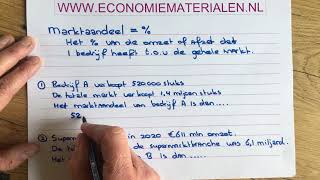 WWW.ECONOMIEMATERIALEN.NL
Marktaandeel = %
Het % van de omzet of afzet dat
1 bedrijf heeft t.o.v de gehele markt.
① Bedrijf A verkoopt 520000 stuks
De totale markt verkoopt 1,4 miljoen stuks
Het marktaandeel van bedrijf A is dan....
52
② Superm in 2020 € 611 mln omzet.
De to de supermarktbranche was 6,1 miljard.
Het B is dan.....